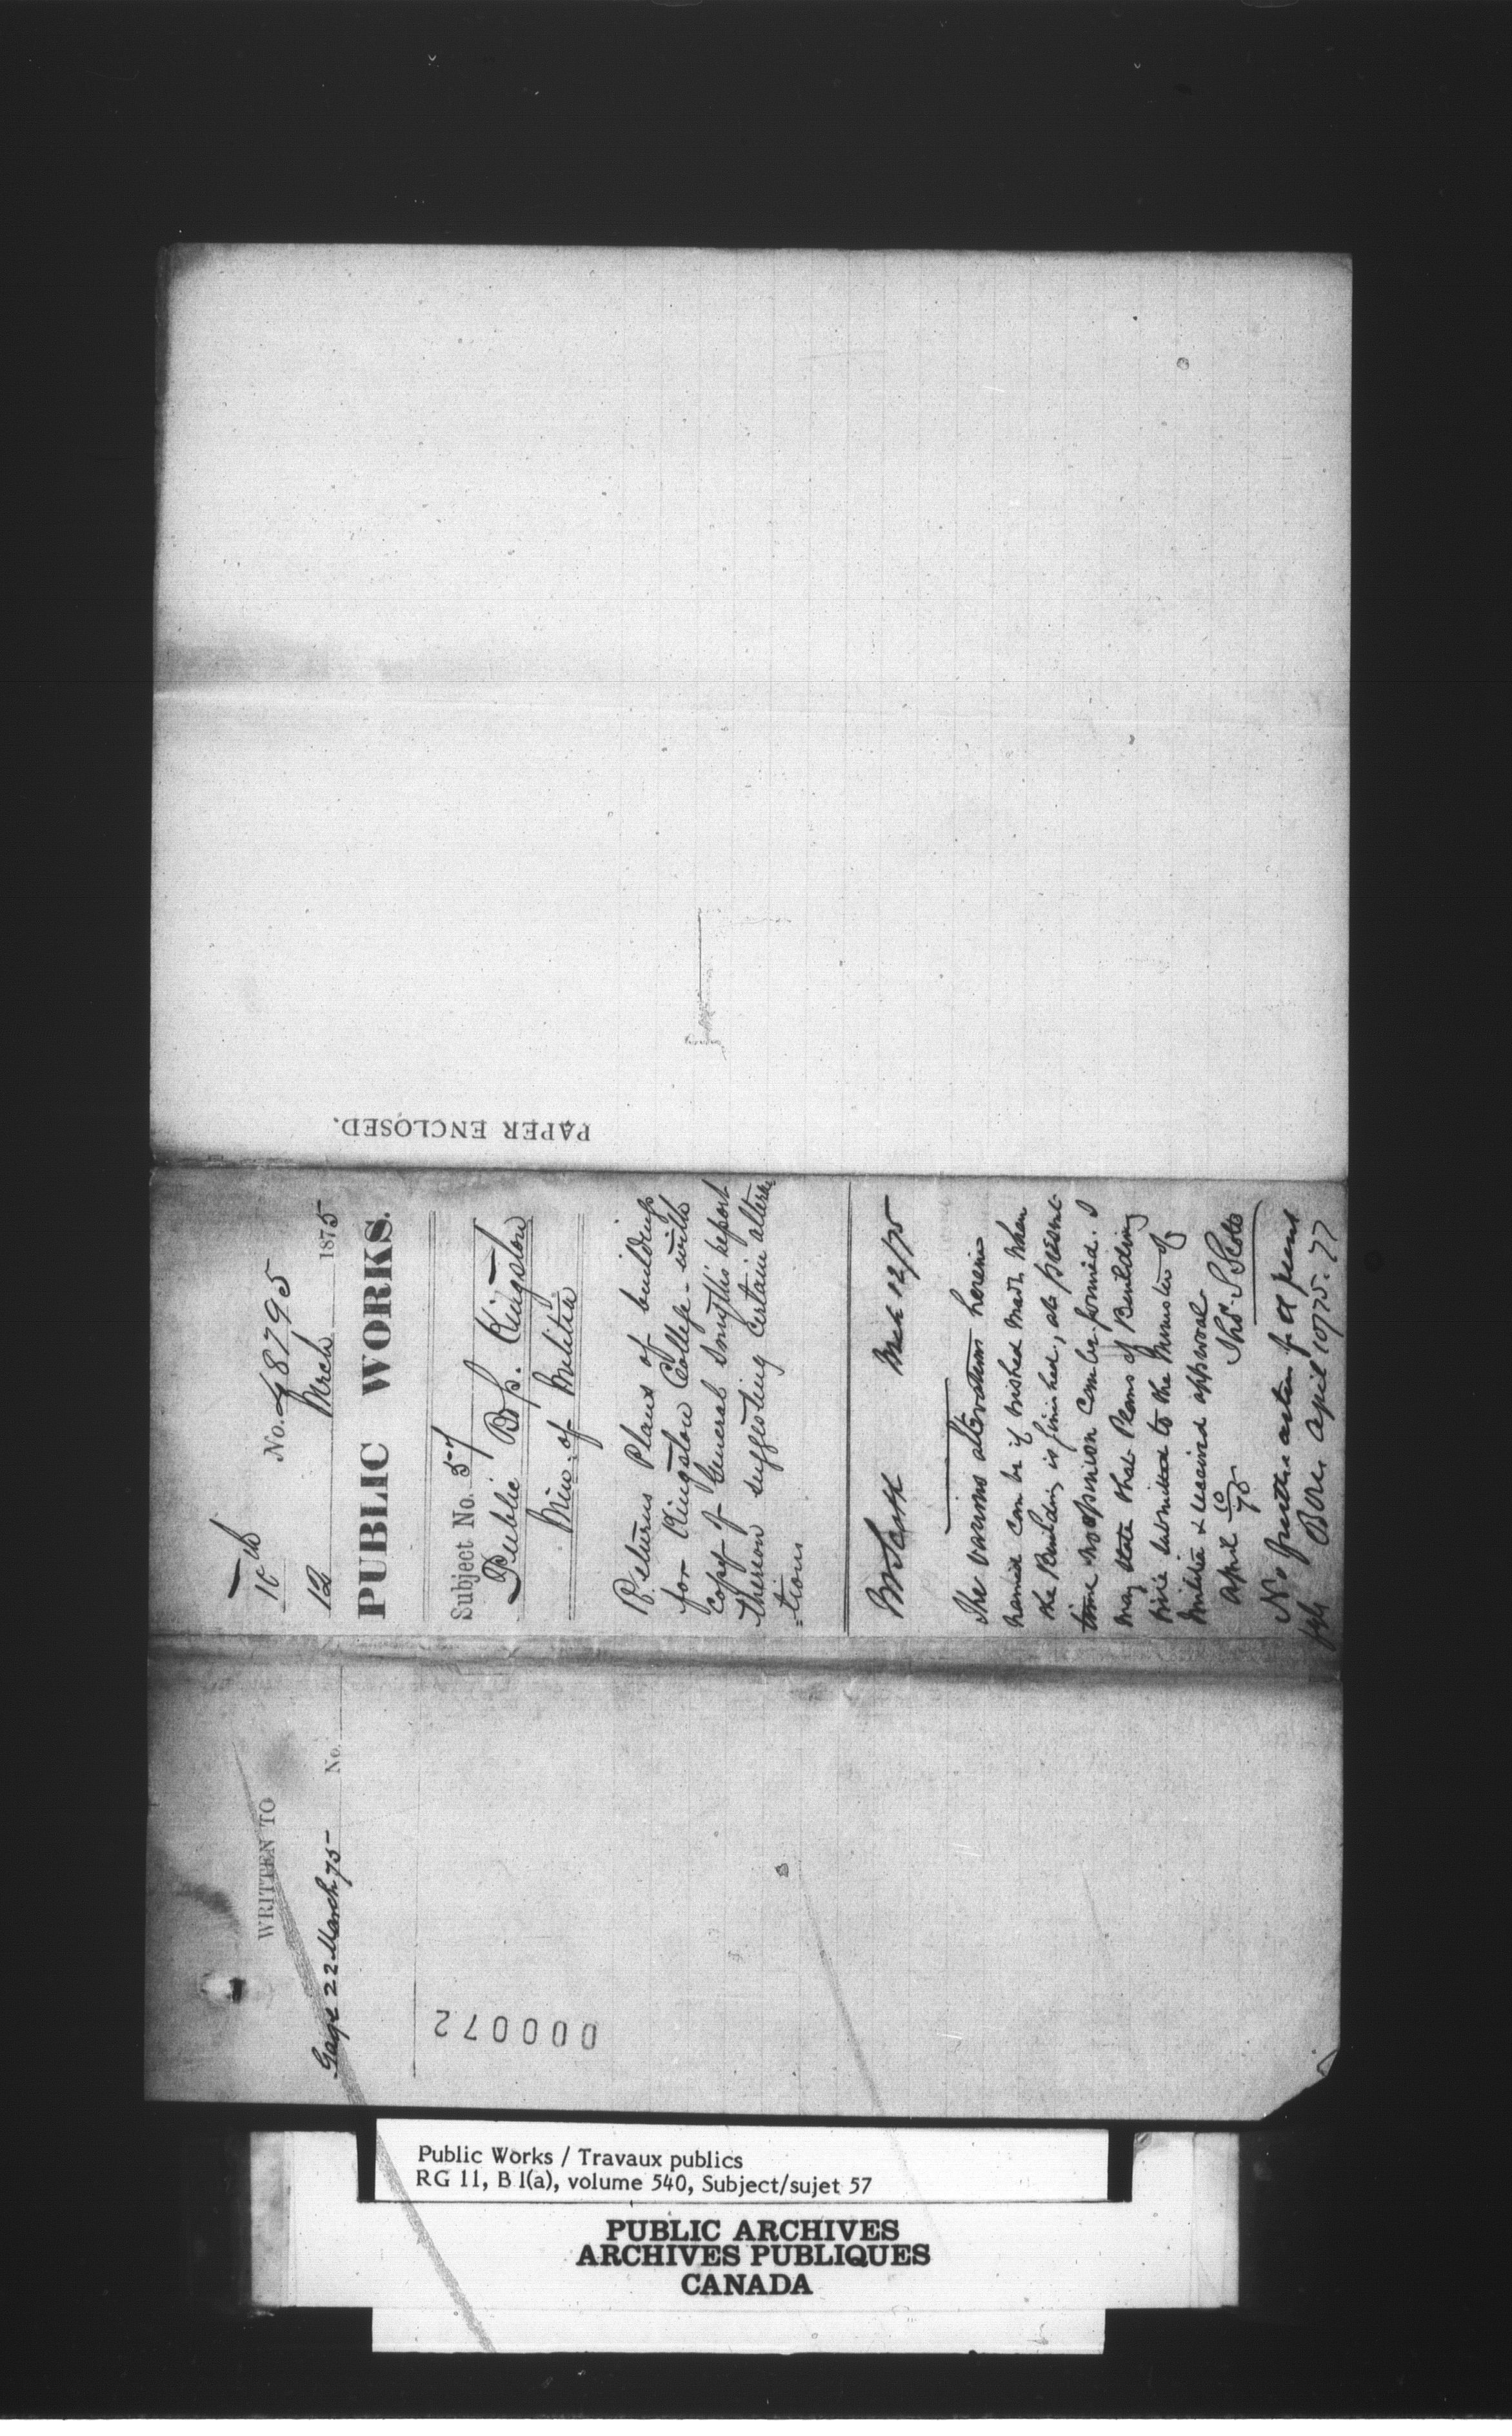 PAPER ENCLOSED.
10th
No. 48795
12 Mrch 1875
PUBLIC WORKS.
Subject No. 57
Public Bgs. Kingston
Min. of Militia
Returns Plans of buildings
for Kingston College - with
copy of General Smyth's report
thereon suggesting certain altera
=tions
Mr Scott Mch 12/75
The various alterations herein
named can be if wished made when
the Building is finished, at present
time no opinion can be formed. I
may state that Plans of Building
were submitted to the Minister of
Militia & received approval.
April 10/75 Thos. S Scott
No further action for at present
April 10/75. 77
WRITTEN TO
No.
Gage 22 March 75
000072
Public Works / Travaux publics
RG 11, B 1(a), volume 540, Subject/sujet 57
PUBLIC ARCHIVES
ARCHIVES PUBLIQUES
CANADA